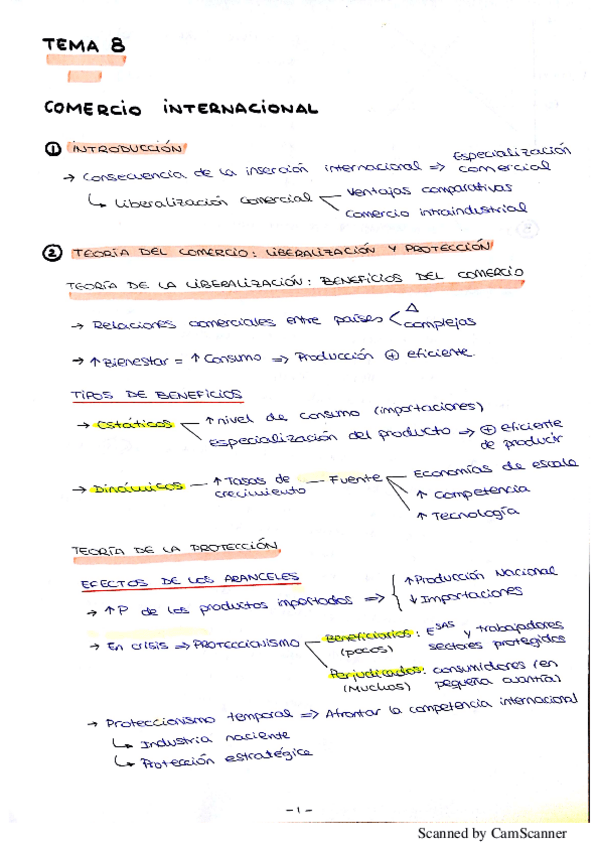 TEMA 8
COMERCIO INTERNACIONAL
① INTRODUCCIÓN
→ Consecuencia de la inserción internacional => Especialización comercial
↳ Liberalización comercial
Ventajas comparativas
Comercio intraindustrial
② TEORÍA DEL COMERCIO: LIBERALIZACIÓN Y PROTECCIÓN
TEORÍA DE LA LIBERALIZACIÓN: BENEFICIOS DEL COMERCIO
→ Relaciones comerciales entre países
Δ
complejas
→ ↑Bienestar = ↑Consumo => Producción ⊕ eficiente.
TIPOS DE BENEFICIOS
→ Estáticos
↑nivel de consumo (importaciones)
Especialización del producto => ⊕ eficiente
de producir
→ Dinámicos — ↑Tasas de
crecimiento
— Fuente
Economías de escala
↑ Competencia
↑ Tecnología
TEORÍA DE LA PROTECCIÓN
EFECTOS DE LOS ARANCELES
→ ↑P de los productos importados =>
↑Producción Nacional
↓Importaciones
→ En crisis => PROTECCIONISMO
Beneficiarios: Eˢᴬˢ y trabajadores
(pocos) sectores protegidos
Perjudicados: consumidores (en
(Muchos) pequeña cuantía)
→ Proteccionismo temporal => Afrontar la competencia internacional
↳ Industria naciente
↳ Protección estratégica
-1-
Scanned by CamScanner